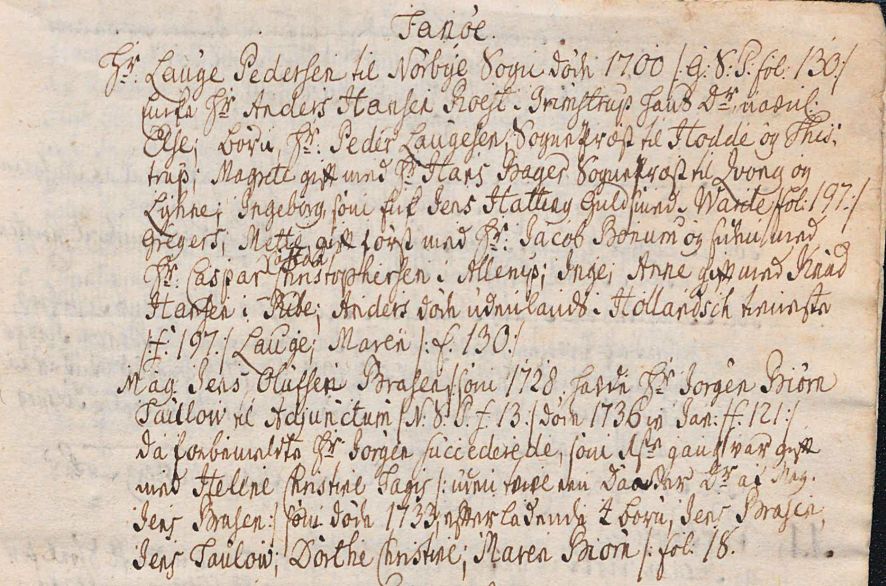 Fanöe.
Hr. Lauge Pedersen til Nörbÿe Sogn döde 1700 /: G: S: P: fol: 130:/
Hr Anders Hansen Roest i Grimstrup hans Dr. navnl:
Else; börn, Hr. Peder Laugesen Sognepræst til Hodde og This,,
trup; Magrete gift med Hr Hans Bager Sognepræst til Qvong og
Lÿhne; Ingeborg som fik Jens Hatting Guldsmed i Warde fol: 197:/
Gregers; Mette gift först med Hr: Jacob Bonum og siden med
Hr. Caspar Christophersen i Allerup; Inge; Anne gift med Knud
Hansen i Ribe; Anders döde udenlands i Hollandsch tieneste
:f: 197:/ Lauge; Maren /: f. 130:/
Mag. Jens Olufsen Brasen, som 1728 havde Hr Jorgen Biörn
Taulow til Adjunctum /N. S. P. f. 13:/ döde 1736 Jan: /f. 121:/
da forbemeldte Hr Jorgen succederede, som 1ste gang var gift
med Hellene Christine Tagis /: uden tvivl en Daatter Dr af Mag.
Jens Brasen:/ som döde 1733, efterladende 4 börn, Jens Brasen,
Jens Taulow; Dorthe Christine; Maren Biörn /: fol: 18.